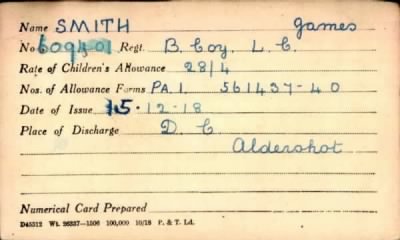 Name SMITH James
No 609501 Regt. B. Coy. L. C.
Rate of Children's Allowance 28/4
Nos. of Allowance Forms PA.1. 561437-40
Date of Issue 15.12-18
Place of Discharge D. C
Aldershot
Numerical Card Prepared
D45312 Wt. 26837—1106 100,000 10/18 P. & T. Ld.